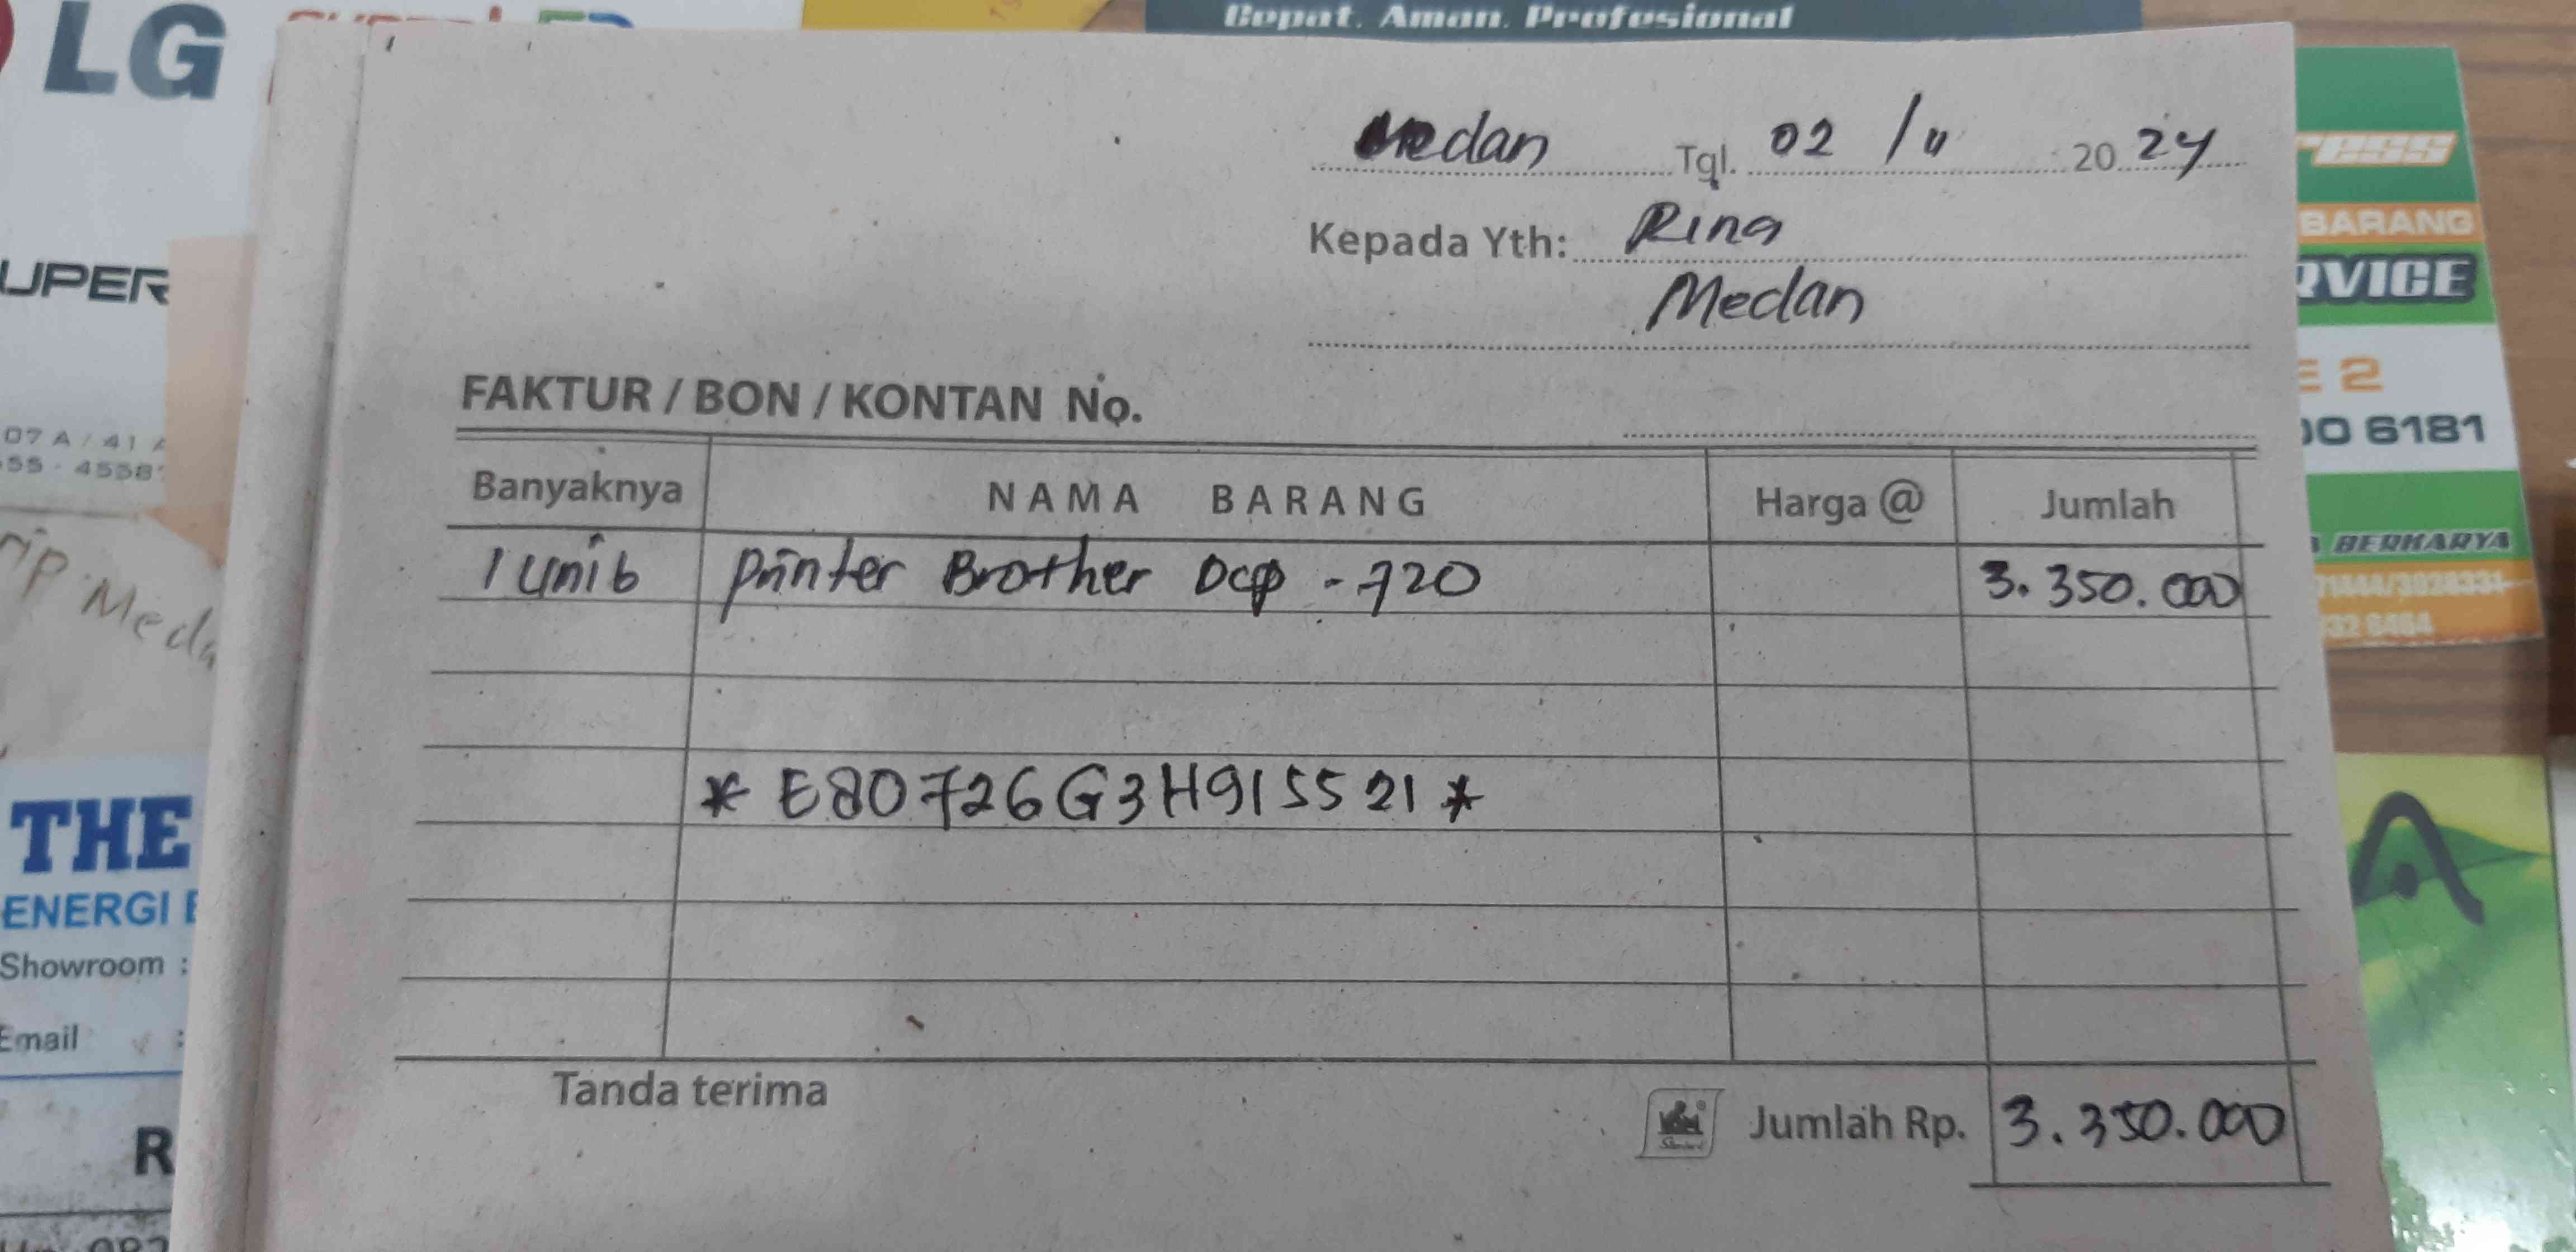 LG
Cepat. Aman. Profesional
Medan Tgl. 02 / 11 2024
Kepada Yth: Rina
Medan
FAKTUR / BON / KONTAN No.
Banyaknya NAMA BARANG Harga @ Jumlah
1 unit Printer Brother Dcp - 720 3.350.000
* E80726G3H915521 *
Tanda terima Jumlah Rp. 3.350.000
UPER
07 A / 41 A
55 - 4558
rip Meda
THE
ENERGI
Showroom :
Email :
R
ress
BARANG
RVICE
E 2
00 6181
BERKARYA